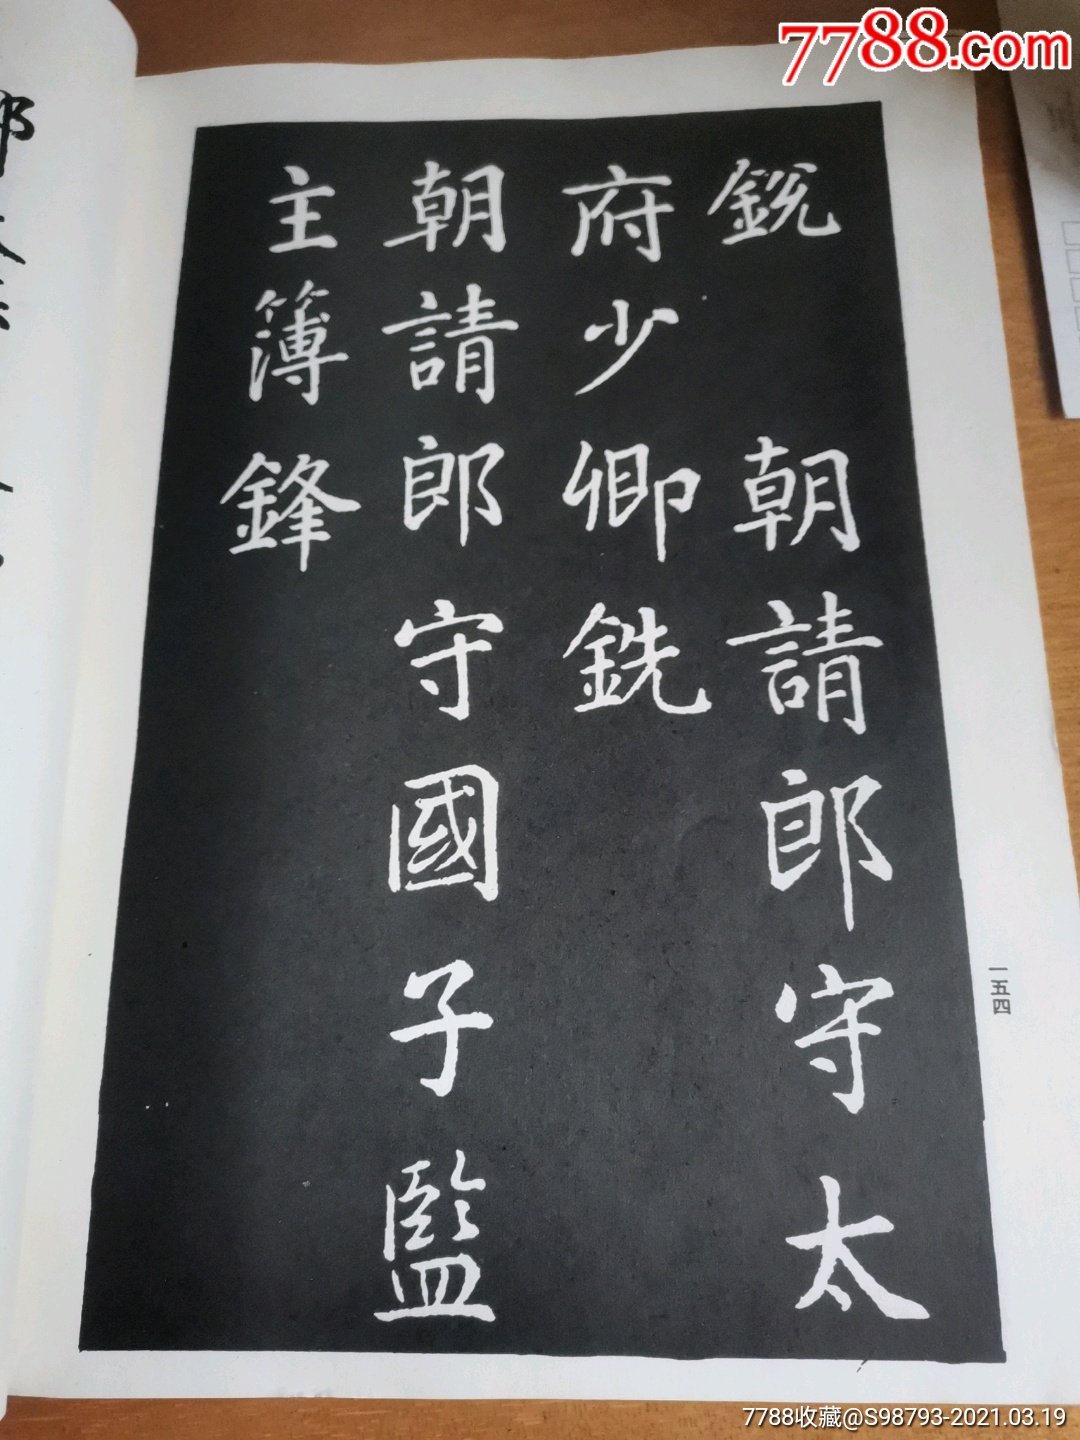 7788.com
銳　朝請郎守太
府少卿銑
朝請郎守國子監
主簿鋒
一五四
7788收藏@S98793-2021.03.19